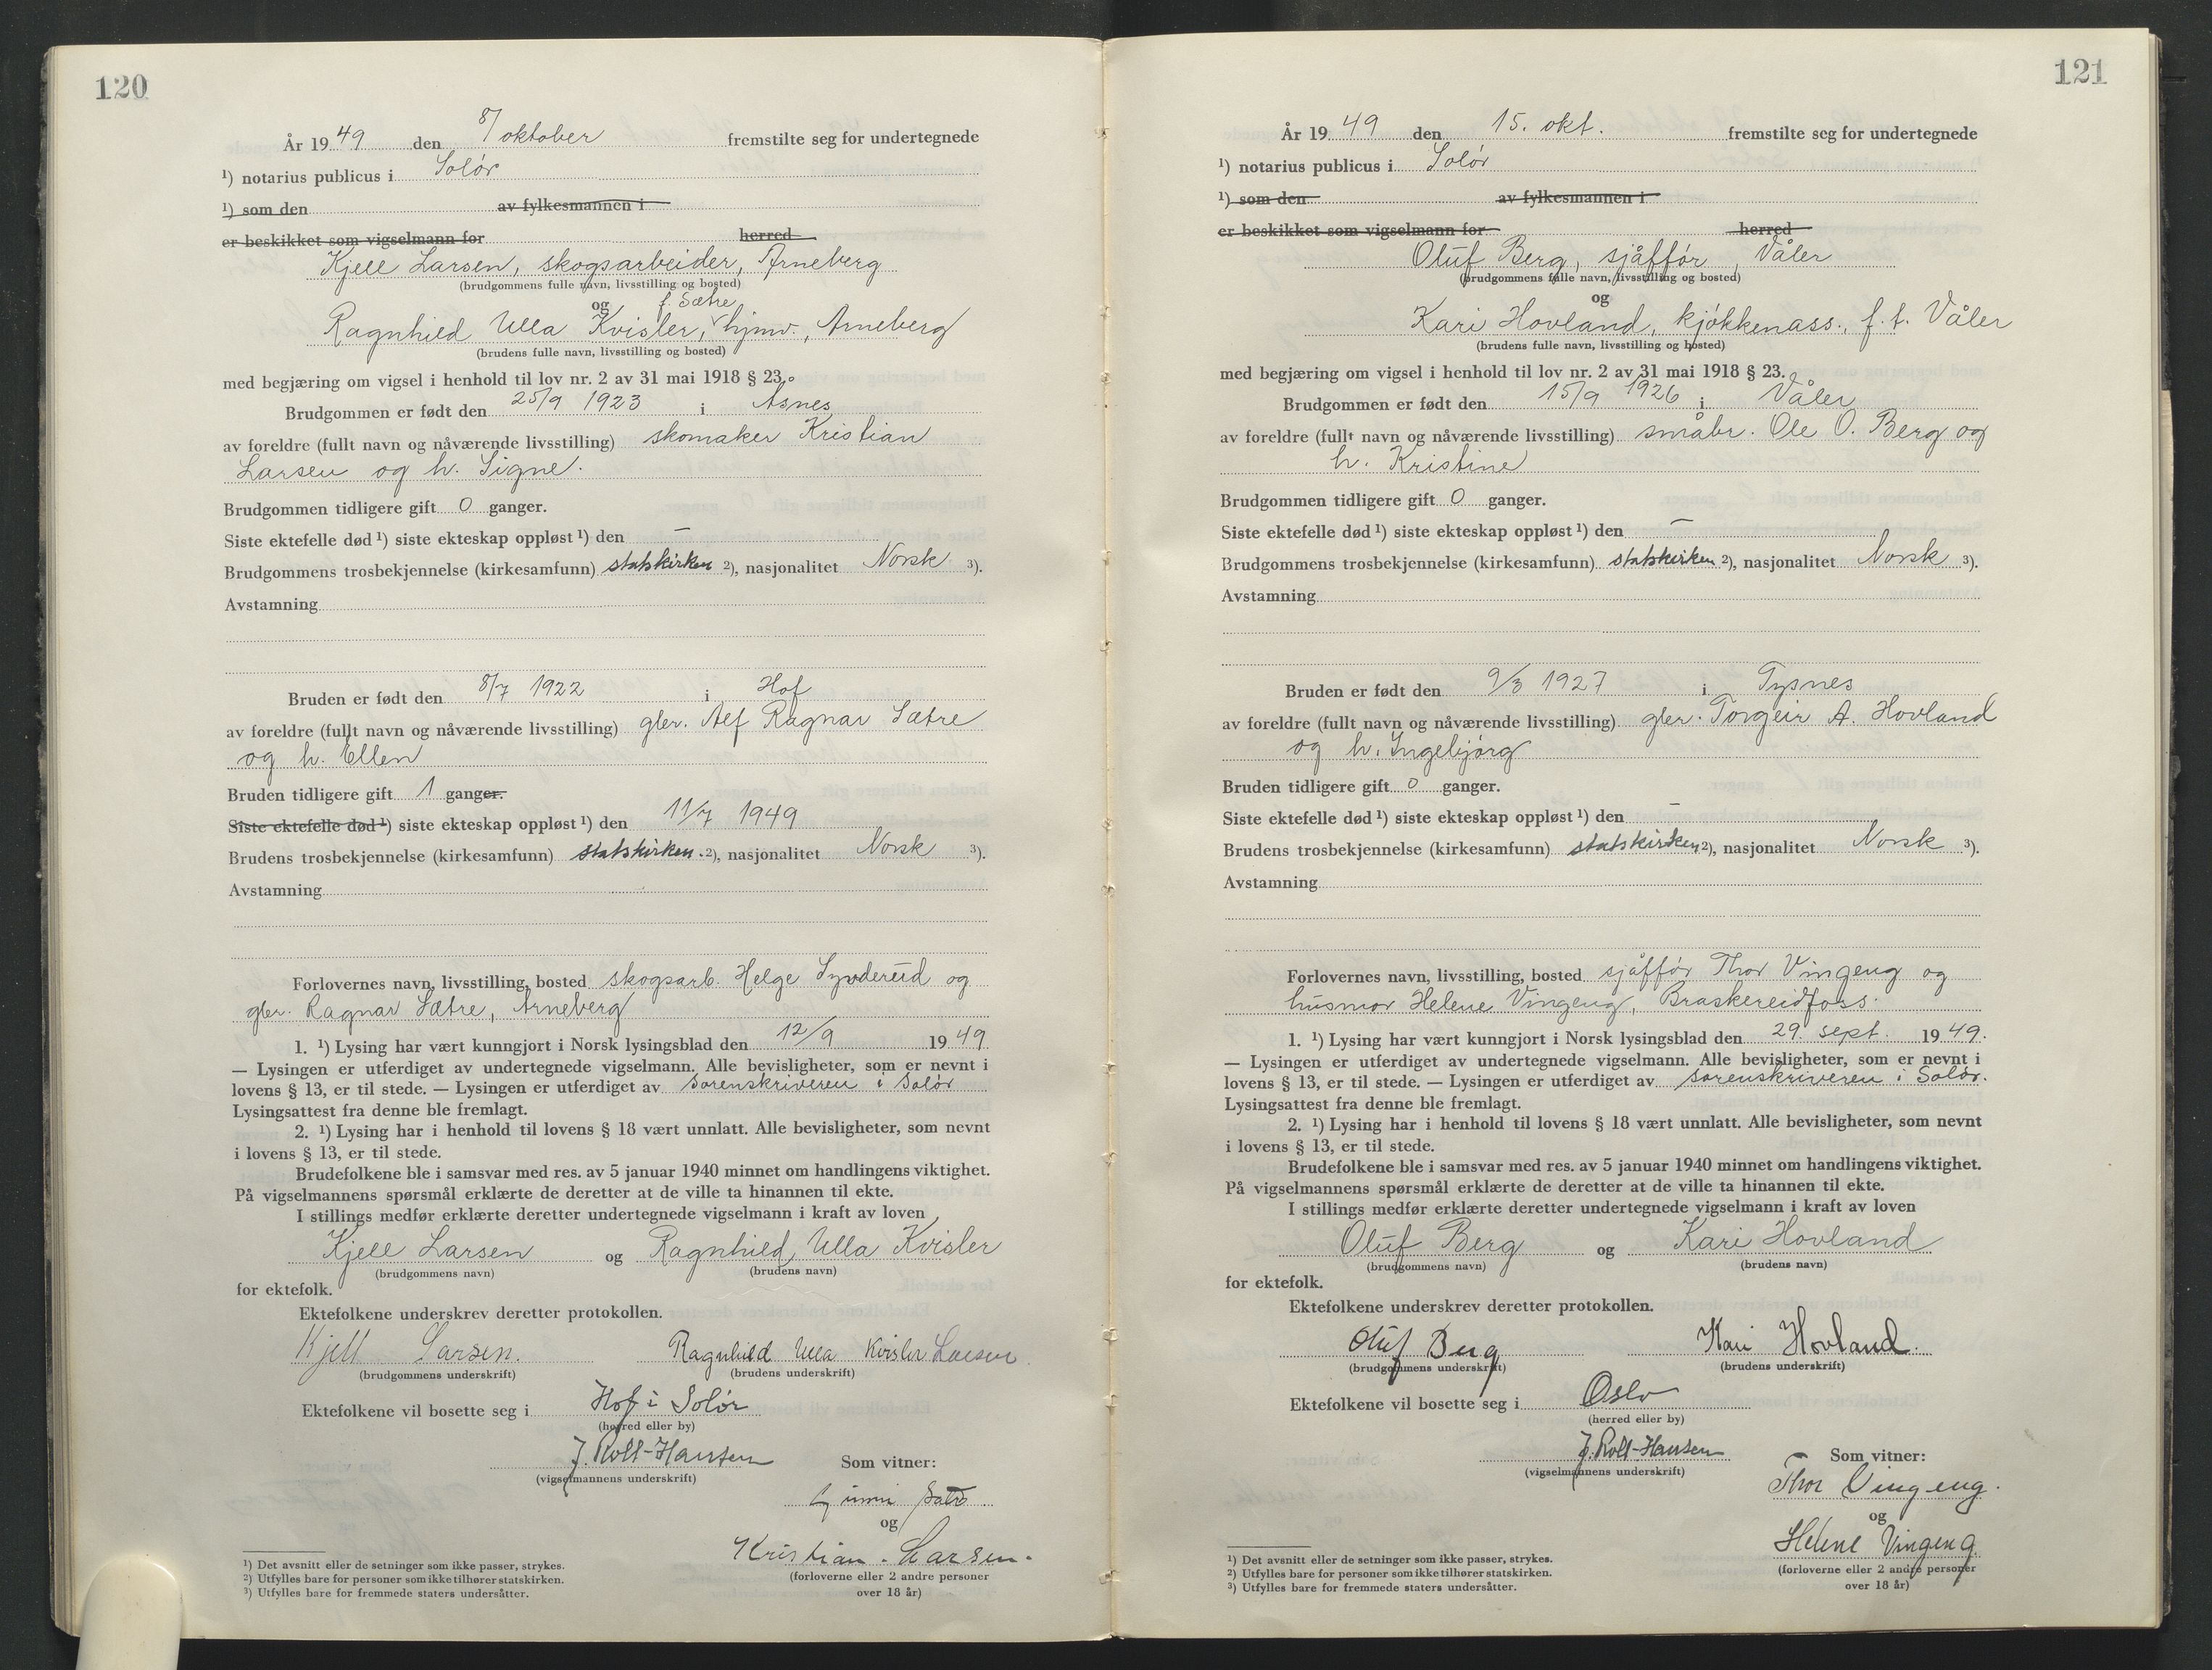 120
År 1949 den 8/ oktober fremstilte seg for undertegnede
¹) notarius publicus i Solør
¹) som den av fylkesmannen i
er beskikket som vigselmann for herred
Kjell Larsen, skogsarbeider, Arneberg
(brudgommens fulle navn, livsstilling og bosted)
og f. Sætre
Ragnhild Ulla Kvisler, hjmv., Arneberg
(brudens fulle navn, livsstilling og bosted)
med begjæring om vigsel i henhold til lov nr. 2 av 31 mai 1918 § 23.
Brudgommen er født den 25/9 1923 i Åsnes
av foreldre (fullt navn og nåværende livsstilling) skomaker Kristian
Larsen og h. Signe.
Brudgommen tidligere gift 0 ganger.
Siste ektefelle død ¹) siste ekteskap oppløst ¹) den —
Brudgommens trosbekjennelse (kirkesamfunn) statskirken ²), nasjonalitet Norsk ³).
Avstamning
Bruden er født den 8/7 1922 i Hof
av foreldre (fullt navn og nåværende livsstilling) gbr. Alf Ragnar Sætre
og h. Ellen
Bruden tidligere gift 1 ganger.
Siste ektefelle død ¹) siste ekteskap oppløst ¹) den 11/7 1949
Brudens trosbekjennelse (kirkesamfunn) statskirken. ²), nasjonalitet Norsk ³).
Avstamning
Forlovernes navn, livsstilling, bosted skogsarb. Helge Syvderud og
gbr. Ragnar Sætre, Arneberg
1. ¹) Lysing har vært kunngjort i Norsk lysingsblad den 12/9 1949.
— Lysingen er utferdiget av undertegnede vigselmann. Alle bevisligheter, som er nevnt i
lovens § 13, er til stede. — Lysingen er utferdiget av sorenskriveren i Solør
Lysingsattest fra denne ble fremlagt.
2. ¹) Lysing har i henhold til lovens § 18 vært unnlatt. Alle bevisligheter, som nevnt
i lovens § 13, er til stede.
Brudefolkene ble i samsvar med res. av 5 januar 1940 minnet om handlingens viktighet.
På vigselmannens spørsmål erklærte de deretter at de ville ta hinannen til ekte.
I stillings medfør erklærte deretter undertegnede vigselmann i kraft av loven
Kjell Larsen og Ragnhild Ulla Kvisler
(brudgommens navn) (brudens navn)
for ektefolk.
Ektefolkene underskrev deretter protokollen.
Kjell Larsen. Ragnhild Ulla Kvisler Larsen
(brudgommens underskrift) (brudens underskrift)
Ektefolkene vil bosette seg i Hof i Solør
(herred eller by)
J. Roll-Hansen
(vigselmannens underskrift) Som vitner:
og
Kristian Larsen.
(forloverne eller 2 andre personer
over 18 år)
¹) Det avsnitt eller de setninger som ikke passer, strykes.
²) Utfylles bare for personer som ikke tilhører statskirken.
³) Utfylles bare for fremmede staters undersåtter.
121
År 1949 den 15. okt. fremstilte seg for undertegnede
¹) notarius publicus i Solør
¹) som den av fylkesmannen i
er beskikket som vigselmann for herred
Oluf Berg, sjåffør, Våler
(brudgommens fulle navn, livsstilling og bosted)
og
Kari Hovland, kjøkkenass., f.t. Våler
(brudens fulle navn, livsstilling og bosted)
med begjæring om vigsel i henhold til lov nr. 2 av 31 mai 1918 § 23.
Brudgommen er født den 15/9 1926 i Våler
av foreldre (fullt navn og nåværende livsstilling) småbr. Ole O. Berg og
h. Kristine
Brudgommen tidligere gift 0 ganger.
Siste ektefelle død ¹) siste ekteskap oppløst ¹) den —
Brudgommens trosbekjennelse (kirkesamfunn) statskirken ²), nasjonalitet Norsk ³).
Avstamning
Bruden er født den 9/3 1927 i Tysnes
av foreldre (fullt navn og nåværende livsstilling) gbr. Torgeir A. Hovland
og h. Ingebjørg
Bruden tidligere gift 0 ganger.
Siste ektefelle død ¹) siste ekteskap oppløst ¹) den —
Brudens trosbekjennelse (kirkesamfunn) statskirken ²), nasjonalitet Norsk ³).
Avstamning
Forlovernes navn, livsstilling, bosted sjåffør Thor Vingeng og
husmor Helene Vingeng, Braskereidfoss.
1. ¹) Lysing har vært kunngjort i Norsk lysingsblad den 29. sept. 1949.
— Lysingen er utferdiget av undertegnede vigselmann. Alle bevisligheter, som er nevnt i
lovens § 13, er til stede. — Lysingen er utferdiget av sorenskriveren i Solør.
Lysingsattest fra denne ble fremlagt.
2. ¹) Lysing har i henhold til lovens § 18 vært unnlatt. Alle bevisligheter, som nevnt
i lovens § 13, er til stede.
Brudefolkene ble i samsvar med res. av 5 januar 1940 minnet om handlingens viktighet.
På vigselmannens spørsmål erklærte de deretter at de ville ta hinannen til ekte.
I stillings medfør erklærte deretter undertegnede vigselmann i kraft av loven
Oluf Berg og Kari Hovland
(brudgommens navn) (brudens navn)
for ektefolk.
Ektefolkene underskrev deretter protokollen.
Oluf Berg Kari Hovland.
(brudgommens underskrift) (brudens underskrift)
Ektefolkene vil bosette seg i Oslo
(herred eller by)
J. Roll-Hansen
(vigselmannens underskrift) Som vitner:
Thor Vingeng.
og
Helene Vingeng.
(forloverne eller 2 andre personer
over 18 år)
¹) Det avsnitt eller de setninger som ikke passer, strykes.
²) Utfylles bare for personer som ikke tilhører statskirken.
³) Utfylles bare for fremmede staters undersåtter.